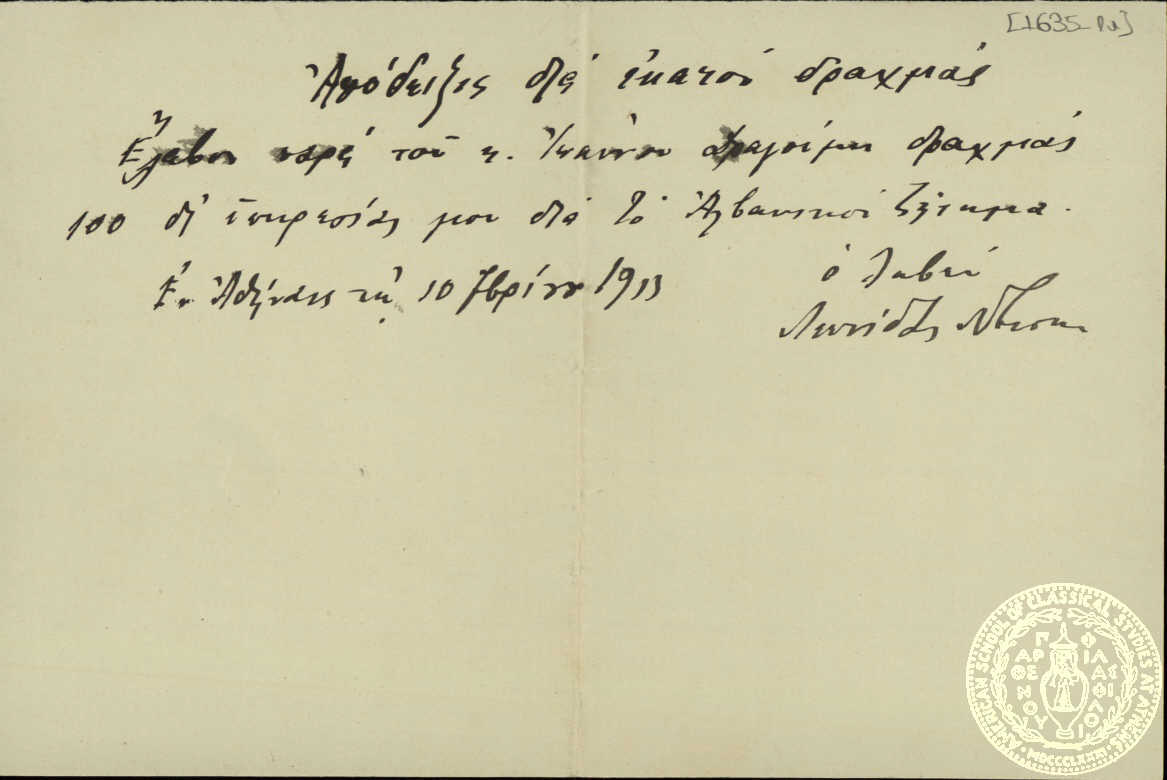 [1635-Ρα]
Ἀπόδειξις διὰ ἑκατὸν δραχμὰς
Ἔλαβον παρὰ τοῦ κ. Ἰωάννου Δραγούμη δραχμὰς
100 δι' ὑπηρεσίας μου διὰ τὸ Ἀλβανικὸν ζήτημα.
Ἐν Ἀθήναις τῇ 10 7βρίου 1913
ὁ λαβὼν
Λεωνίδας
AMERICAN SCHOOL OF CLASSICAL STUDIES AT ATHENS
ΠΑΡΘΕΝΟΥ ΦΙΛΑΣ ΦΙΛΟΙ
MDCCCLXXXI